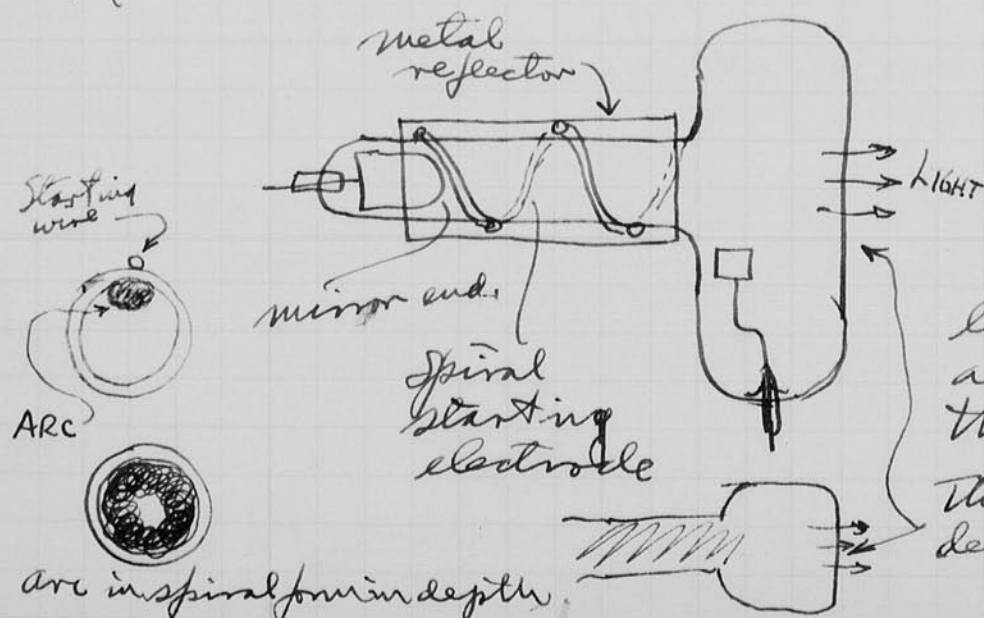 metal
reflector
LIGHT
Starting
wire
mirror end.
Spiral
starting
electrode
ARC
arc in spiral form in depth